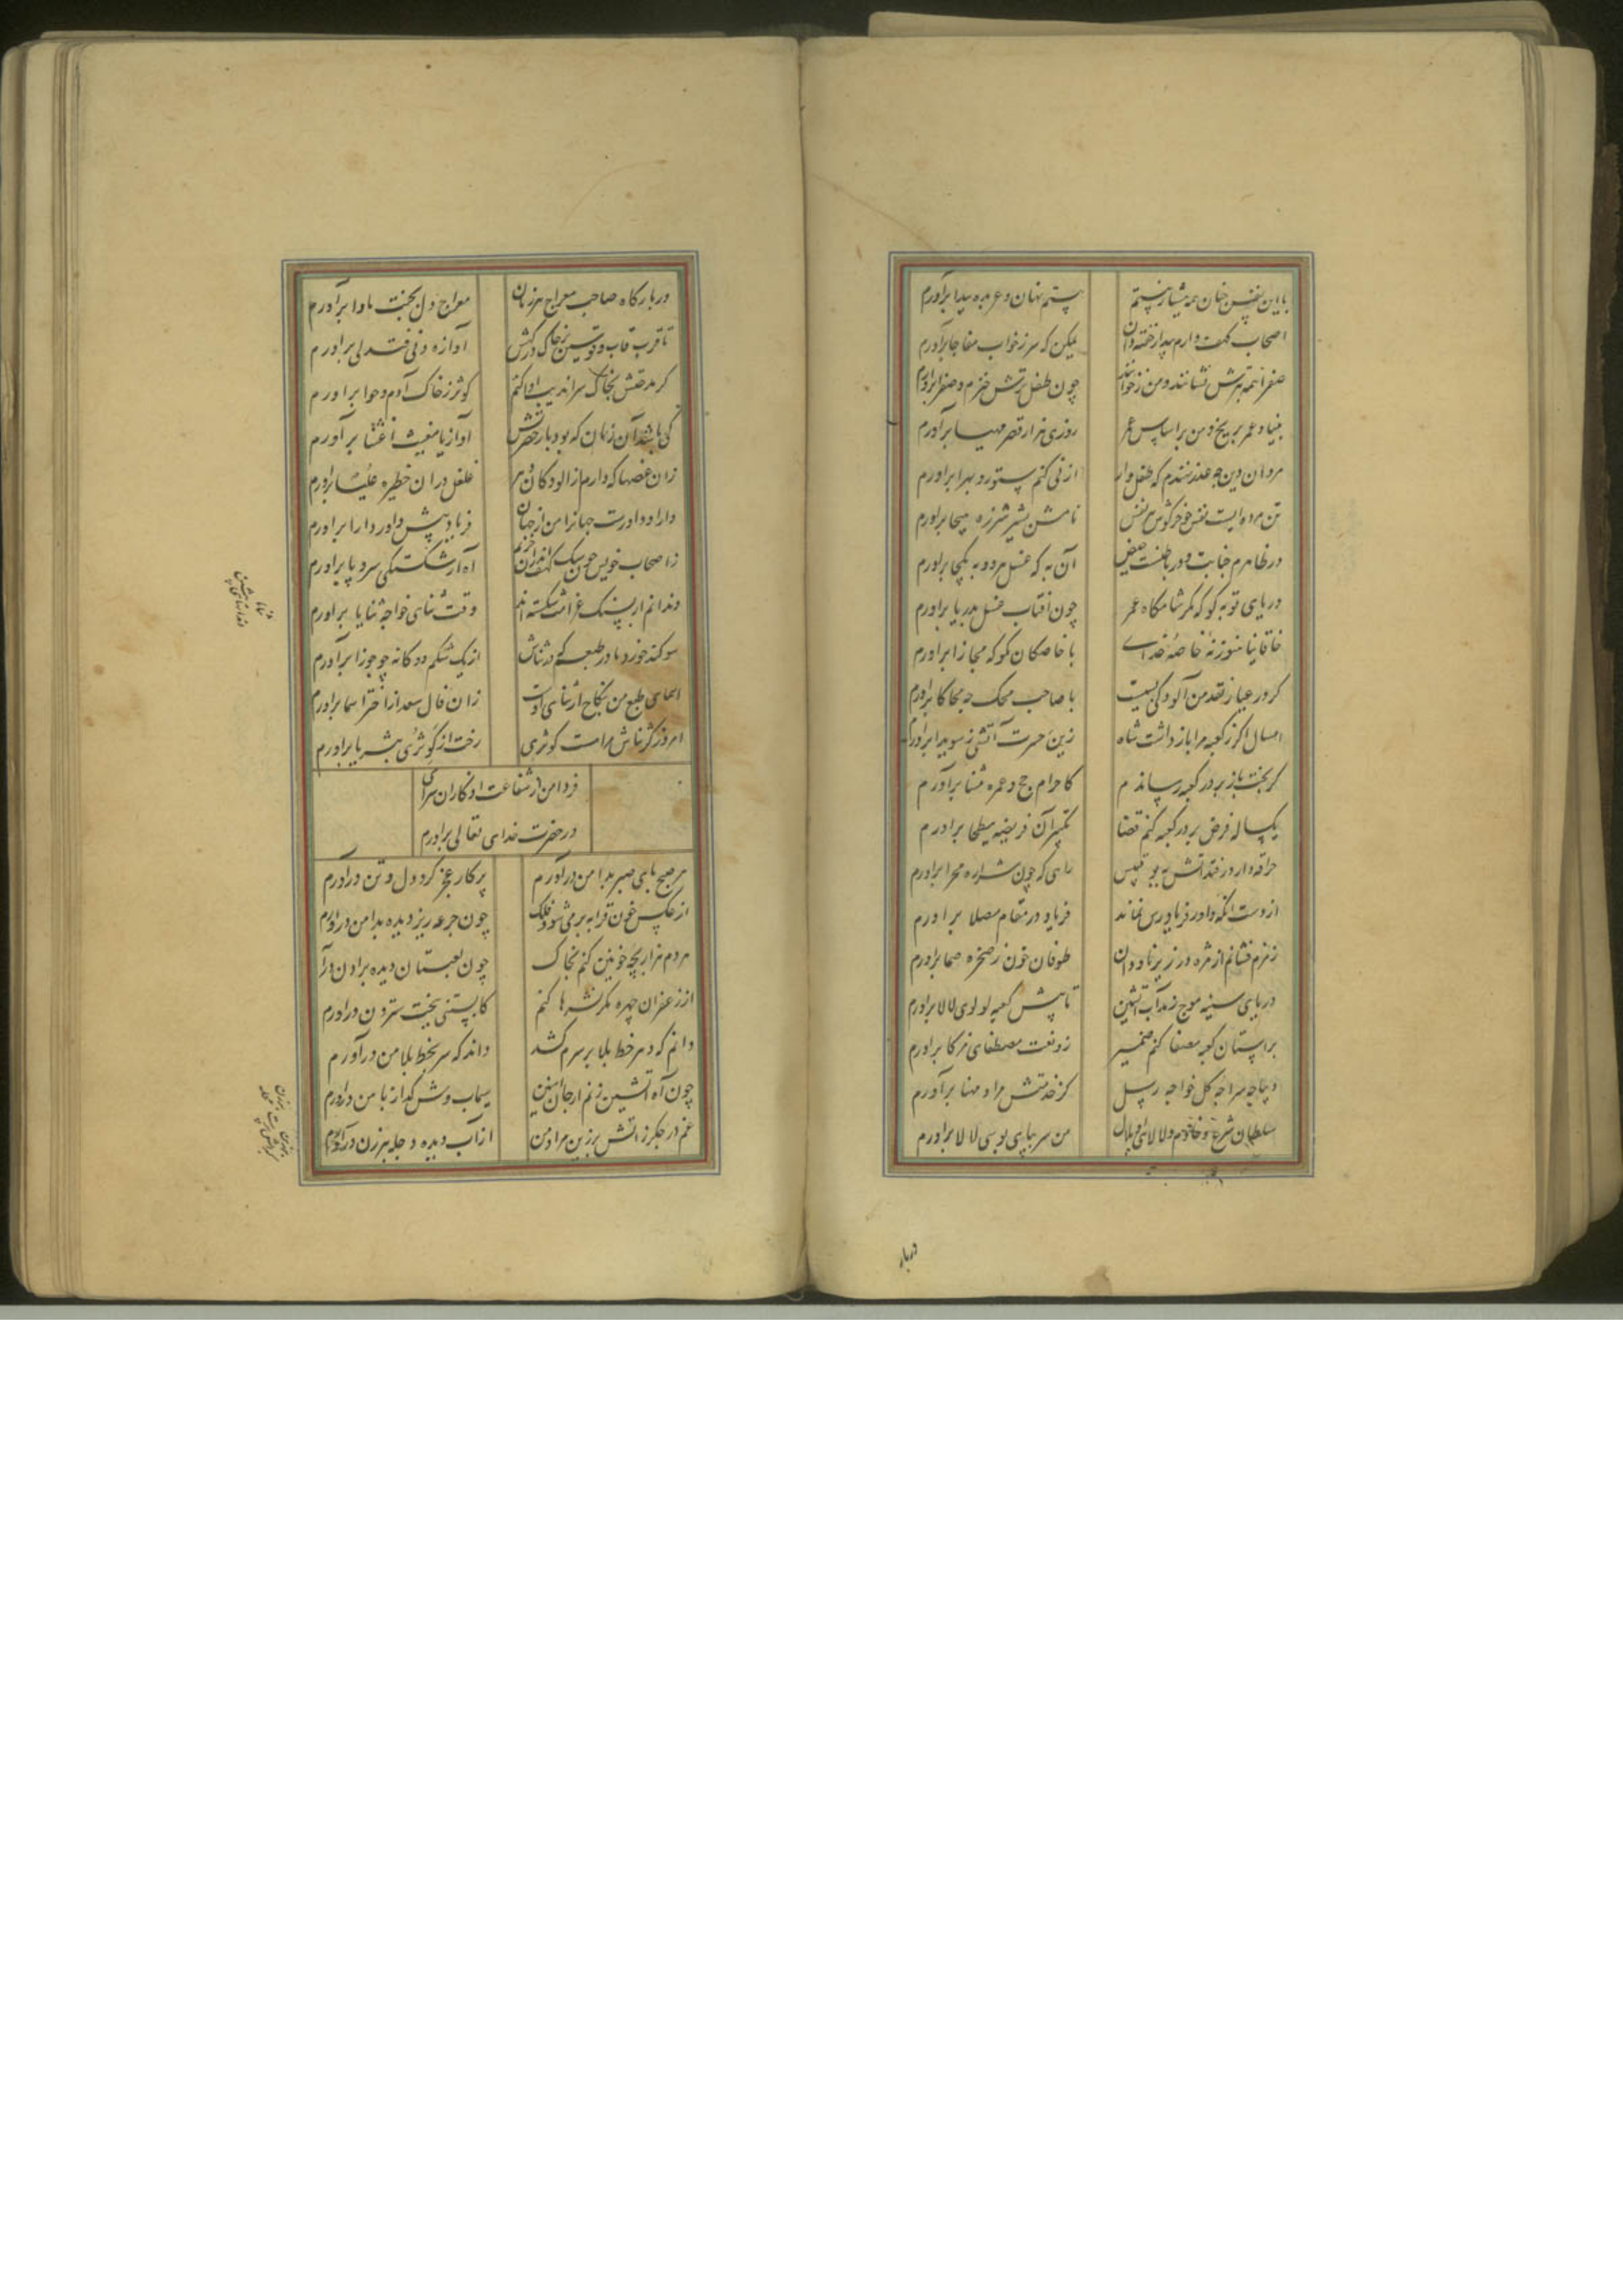 با این نفس چنان همه هشیار نیستم
مستم نهان و عربده پیدا برآورم
اصحاب کهف وارم بیدار خفته دان
لیکن که سر ز خواب مفاجا برآورم
صفرا همه بترش نشانند و من ز خواب
چون طفل ترش خیزم و صفرا برآورم
بنیاد عمر بر یخ و من بر اساس عمر
روزی هزار قصر مهیا برآورم
مردان دین چه عذر نهندم که طفل وار
از نی کنم ستور و بهرا برآورم
تن مرده ایست نفس
نامش بشیر شرزه هیجا برآورم
در ظاهرم جنابت و در باطنست حیض
آن به که غسل هر دو به یکجا برآورم
دریای توبه کو که مگر شامگاه عمر
چون آفتاب غسل بدریا برآورم
خاقانیا هنوز نهٔ خاصهٔ خدای
با خاصگان مگو که مجازا برآورم
گر در عیار نقد من آلودگی بسیت
با صاحب محک چه محاکا برآورم
امسال اگر ز کعبه مرا باز داشت شاه
زین حسرت آتشی ز سویدا برآورم
گر بخت باز بر در کعبه رساندم
کاحرام حج و عمره مثنا برآورم
یکساله فرض بر در کعبه کنم قضا
تکبیر آن فریضه ببطحا برآورم
حراقه وار در فتد آتش به بوقبیس
راهی که چون شراره مجرا برآورم
از دست آنکه داور فریادرس نماند
فریاد در مقام مصلا برآورم
زمزم فشانم از مژه در زیر ناودان
طوفان خون ز صخره صما برآورم
دریای سینه موج زند آب آتشین
تا پیش کعبه لولوی لالا برآورم
بر آستان کعبه مصفا کنم ضمیر
زو نعت مصطفای مزکا برآورم
دیباچه سراچه کل خواجه رسل
کز خدمتش مراد مهنا برآورم
سلطان شرع و خادم لالای او بلال
من سر بپای بوسی لالا برآورم
دربار
دربار گاه صاحب معراج هر زمان
معراج دل بجنت ماوا برآورم
تا قرب قاب و قوسین بر خاک درگهش
آوازه دنی فتدلی برآورم
گر مدحتش بخاک سراندیب ادا کنم
کوثر ز خاک آدم و حوا برآورم
کی باشد آن زمان که بود باز حضرتش
آواز یا مغیث اغثنا برآورم
زان غصها که دارم از آلودگان دهر
غلغل در آن حظیره علیا برآورم
دارا و داورست جهانرا من از جهان
فریاد پیش داور دارا برآورم
ز اصحاب خویش چون سگ کهف اندر آن حرم
آه از شکستگی سر و پا برآورم
دندانم ار بسنگ غرامت شکسته اند
وقت ثنای خواجه ثنایا برآورم
سوگند خورد مادر طبعم که در ثناش
از یک شکم دوگانه چو جوزا برآورم
اسمای طبع من بنکاح ثنای اوست
زان فال سعد از اختر اسما برآورم
امروز کز ثناش مراست کوثری
رخت از گوثری بثریا برآورم
فردا من از شفاعت او کار آن سرای
در حضرت خدای تعالی برآورم
هر صبح پای صبر بدامن درآورم
پرکار عجز گرد دل و تن درآورم
از عکس خون قرابه پر می شود فلک
چون جرعه ریز دیده بدامن درآورم
هر دم هزار بچه خونین کنم بخاک
چون لعبتان دیده بزادن درآ
از زعفران چهره مگر نشرها کنم
کابستنی ببخت سترون درآورم
دانم که دهر خط بلا بر سرم کشد
داند که سر بخط بلا من درآورم
چون آه آتشین زنم از جان آهنین
سیماب وش گداز بآهن درآورم
غم در جگر ز آتش برزین مرا و من
از آب دیده دجله ببرزن درآورم